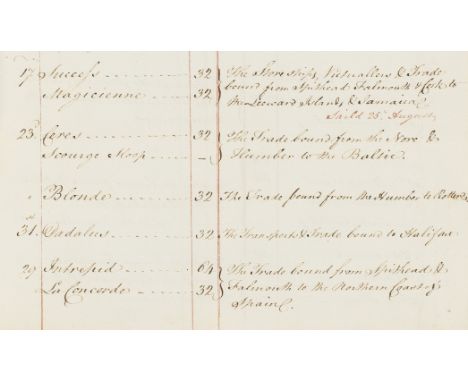 17 Success 32 The Store ships, Victuallers & Trade
Magicienne 32 bound from Spithead Falmouth & Cork to
the Leeward Islands & Jamaica
Sail'd 25 August
23d Ceres 32 The Trade bound from the Nore &
Scourge Sloop – Humber to the Baltic.
" Blonde 32 The Trade bound from the Humber to
31st Dædalus 32 The Transports & Trade bound to Halifax
29 Intrepid 64 The Trade bound from Spithead &
La Concorde 32 Falmouth to the Northern Coast of
Spain.